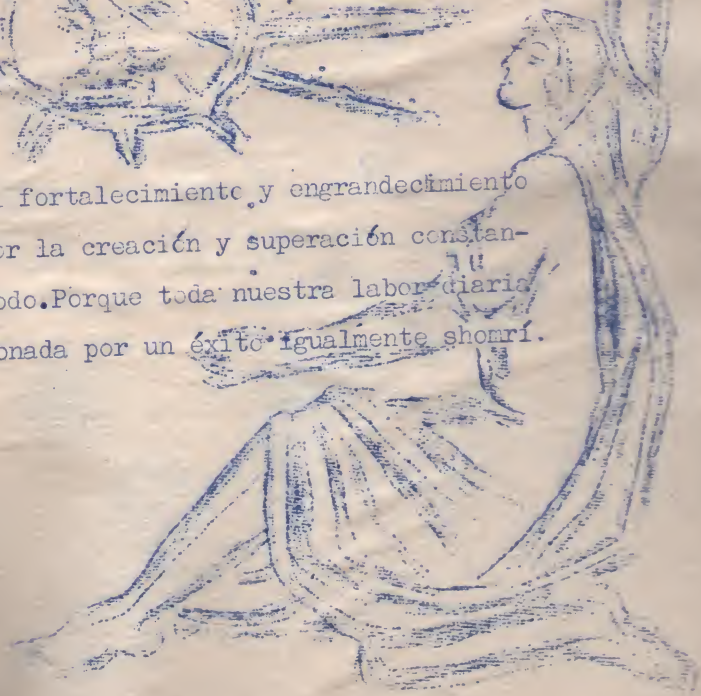 fortalecimiento y engrandecimiento
or la creación y superación constan-
odo.Porque toda nuestra labor diaria
onada por un éxito igualmente shomrí.